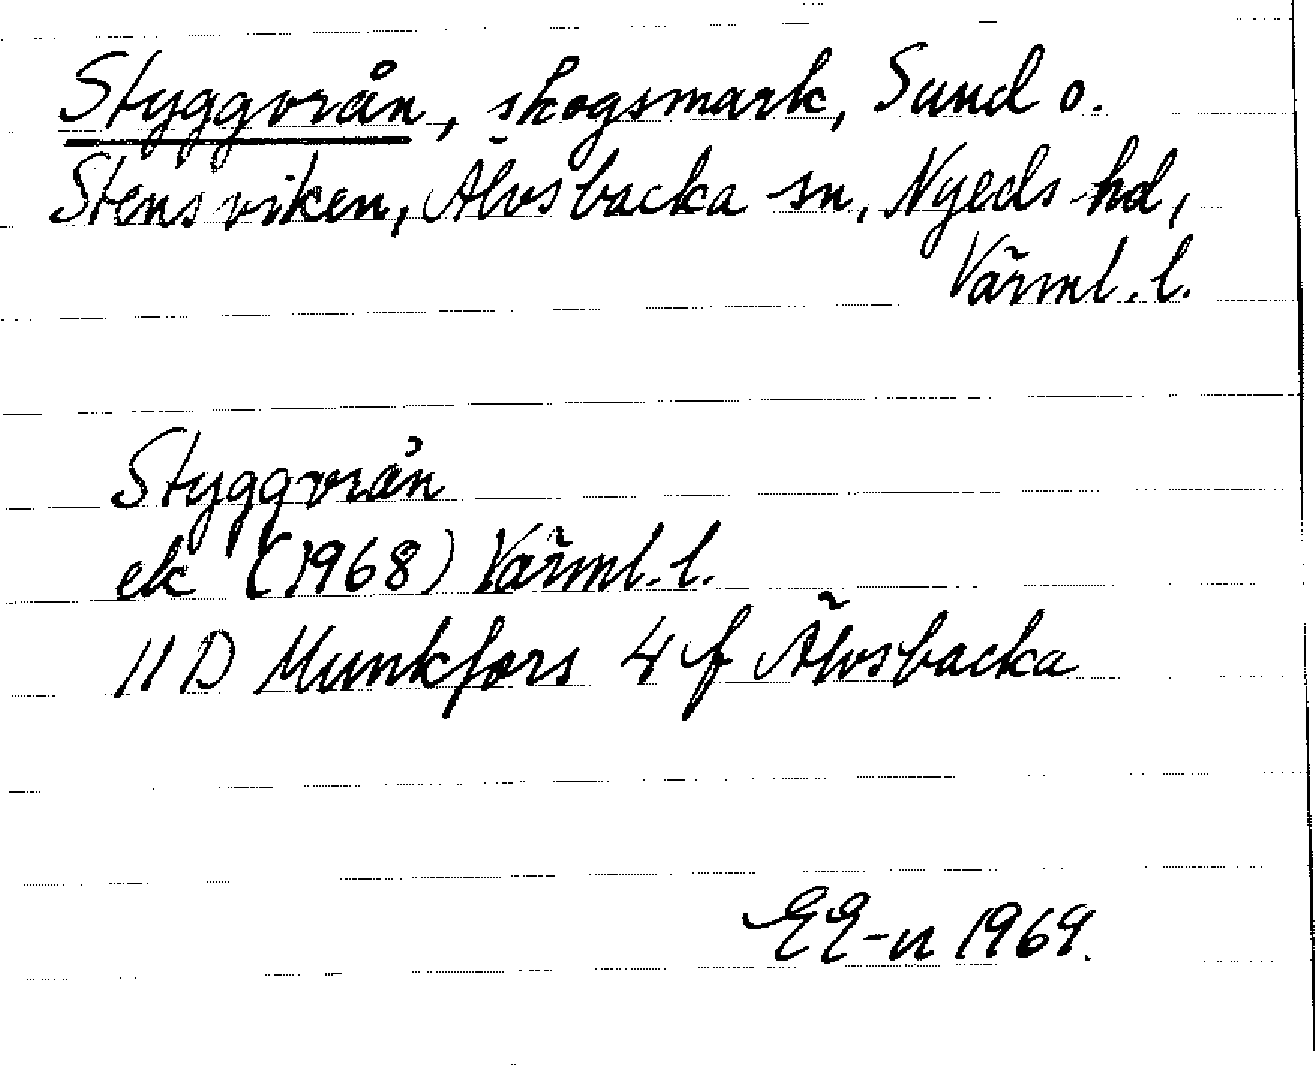 Styggvrån, skogsmark, Sund o.
Stensviken, Älvsbacka sn, Nyeds hd,
Värml. l.
Styggvrån
ek (1968) Värml. l.
11 D Munkfors 4 f Älvsbacka
EE-n 1969.